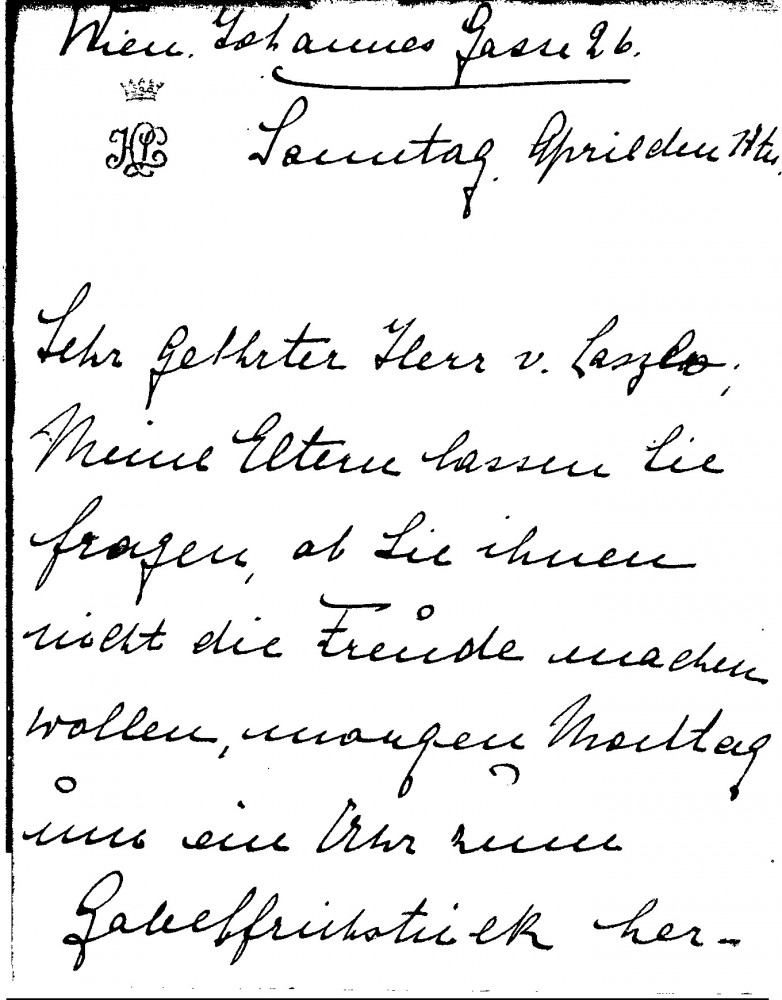 Wien. Johannes Gasse 26.
HL Sonntag. April den
Sehr geehrter Herr v. Laszlo;
Meine Eltern lassen Sie
fragen, ob Sie ihnen
nicht die Freude machen
wollen, morgen Montag
um ein Uhr zum
Gabelfrühstück her-